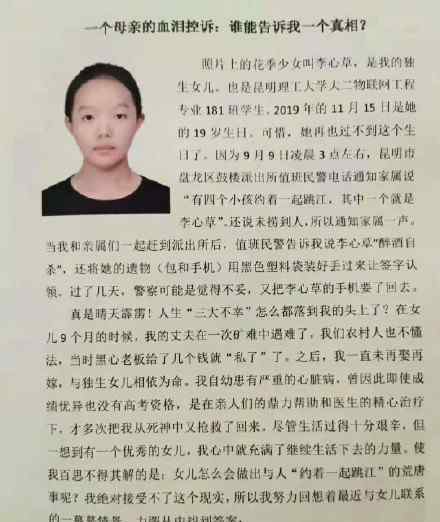 一个母亲的血泪控诉：谁能告诉我一个真相？
照片上的花季少女叫李心草，是我的独
生女儿。也是昆明理工大学大二物联网工程
专业 181 班学生。2019 年的 11 月 15 日是她
的 19 岁生日。可惜，她再也过不到这个生
日了。因为 9 月 9 日凌晨 3 点左右，昆明市
盘龙区鼓楼派出所值班民警电话通知家属说
“有四个小孩约着一起跳江，其中一个就是
李心草”。还说未捞到人，所以通知家属一声。
当我和亲属们一起赶到派出所后，值班民警告诉我说李心草“醉酒自
杀”，还将她的遗物（包和手机）用黑色塑料袋装好丢过来让签字认
领。过了几天，警察可能是觉得不妥，又把李心草的手机要了回去。
真是晴天霹雳！人生“三大不幸”怎么都落到我的头上了？在女
儿 9 个月的时候，我的丈夫在一次矿难中遇难了。我们农村人也不懂
法，当时黑心老板给了几个钱就“私了”了。之后，我一直未再娶再
嫁，与独生女儿相依为命。我自幼患有严重的心脏病，曾因此即使成
绩优异也没有高考资格，是在亲人们的鼎力帮助和医生的精心治疗
下，才多次把我从死神中又抢救了回来。尽管生活过得十分艰辛，但
一想到有一个优秀的女儿，我心中就充满了继续生活下去的力量。使
我百思不得其解的是：女儿怎么会做出与人“约着一起跳江”的荒唐
事呢？我绝对接受不了这个现实，所以我努力回想着最近与女儿联系
的一幕幕情景，力图从中找到答案。